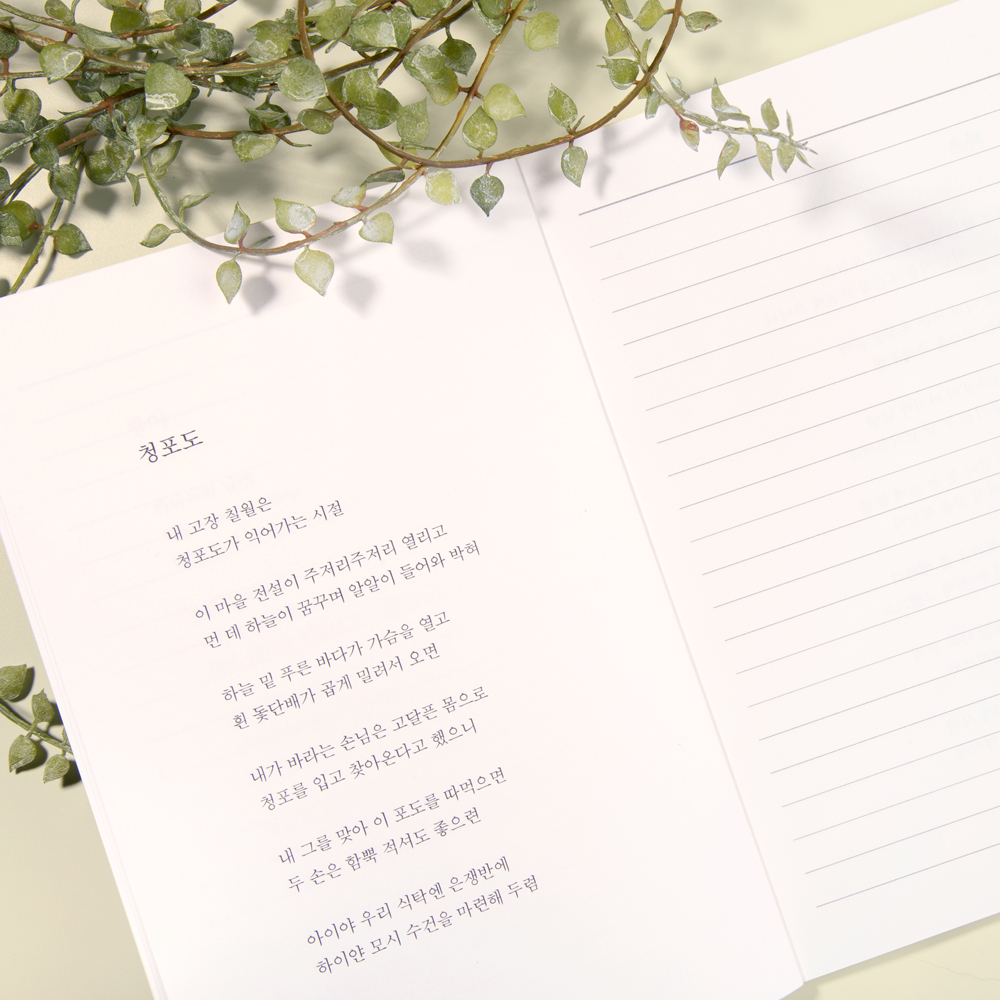 청포도
내 고장 칠월은
청포도가 익어가는 시절
이 마을 전설이 주저리주저리 열리고
먼 데 하늘이 꿈꾸며 알알이 들어와 박혀
하늘 밑 푸른 바다가 가슴을 열고
흰 돛단배가 곱게 밀려서 오면
내가 바라는 손님은 고달픈 몸으로
청포를 입고 찾아온다고 했으니
내 그를 맞아 이 포도를 따먹으면
두 손은 함뿍 적셔도 좋으련
아이야 우리 식탁엔 은쟁반에
하이얀 모시 수건을 마련해 두렴